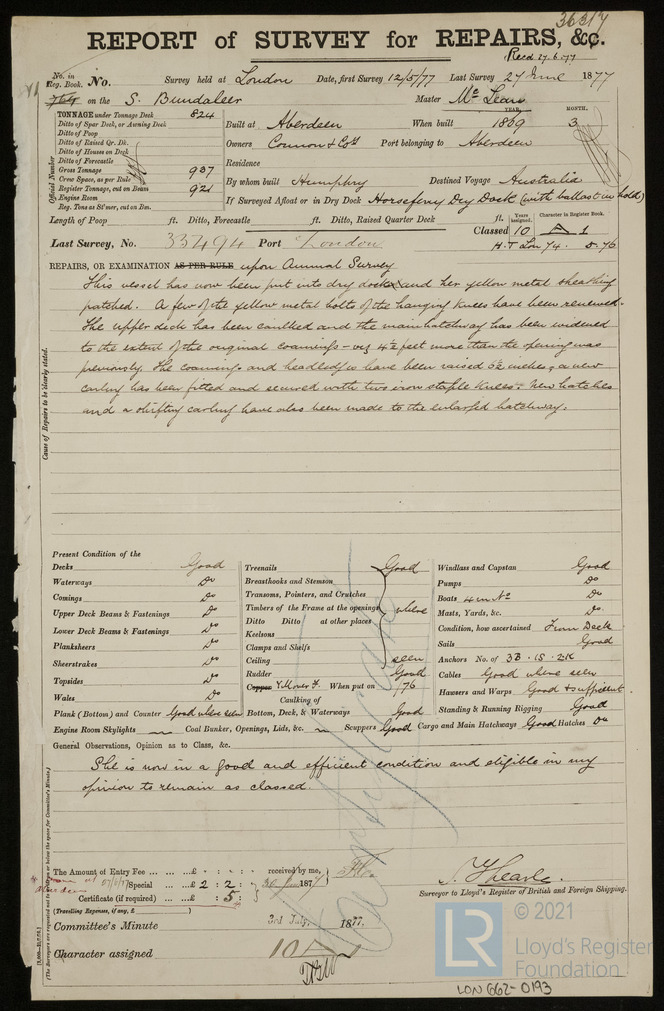 36317
REPORT of SURVEY for REPAIRS, &c.
Recd 27.6.77
No. in Reg. Book. No. Survey held at London Date, first Survey 12/5/77 Last Survey 27 June 1877
769 on the S. Bundaleer Master Mc Lean
TONNAGE under Tonnage Deck 824
Ditto of Spar Deck, or Awning Deck
Ditto of Poop
Ditto of Raised Qr. Dk.
Ditto of Houses on Deck
Ditto of Forecastle
Gross Tonnage 937
Crew Space, as per Rule
Register Tonnage, cut on Beam 921
Engine Room
Reg. Tons as St'mer, cut on Bm.
Official Number
YEAR. MONTH.
Built at Aberdeen When built 1869 3
Owners Connon & Co Port belonging to Aberdeen
Residence
By whom built Humphrey Destined Voyage Australia
If Surveyed Afloat or in Dry Dock Horseferry Dry Dock (with ballast in hold)
Length of Poop ft. Ditto, Forecastle ft. Ditto, Raised Quarter Deck ft.
Years assigned. Character in Register Book.
Classed 10 A 1
Last Survey, No. 33494 Port London
H.T Lon 74. 5.76
REPAIRS, OR EXAMINATION AS PER RULE upon Annual Survey
Cause of Repairs to be clearly stated.
This vessel has now been put into dry dock and her yellow metal sheathing
patched. A few of the yellow metal bolts of the hanging knees have been renewed.
The upper deck has been caulked and the main hatchway has been widened
to the extent of the original coamings – viz 4½ feet more than the opening was
previously. The coamings and headledges have been raised 5½ inches, a new
carling has been fitted and secured with two iron staple knees. New hatches
and a shifting carling have also been made to the enlarged hatchway.
Present Condition of the
Decks Good
Waterways Do
Comings Do
Upper Deck Beams & Fastenings Do
Lower Deck Beams & Fastenings Do
Planksheers Do
Sheerstrakes Do
Topsides Do
Wales Do
Plank (Bottom) and Counter Good where seen
Engine Room Skylights
Treenails Good
Breasthooks and Stemson
Transoms, Pointers, and Crutches
Timbers of the Frame at the openings where
Ditto Ditto at other places
Keelsons
Clamps and Shelfs
Ceiling seen
Rudder Good
Copper Y. Mover F. When put on /76
Caulking of
Bottom, Deck, & Waterways Good
Coal Bunker, Openings, Lids, &c. Scuppers Good Cargo and Main Hatchways Good Hatches Do
Windlass and Capstan Good
Pumps Do
Boats 4 in No Do
Masts, Yards, &c. Do.
Condition, how ascertained From Deck
Sails Good
Anchors No. of 3B. 1S. 2K
Cables Good where seen
Hawsers and Warps Good & sufficient
Standing & Running Rigging Good
General Observations, Opinion as to Class, &c.
She is now in a good and efficient condition and eligible in my
opinion to remain as classed
The Amount of Entry Fee ... ... £ : : received by me,
Special ... ... £ 2 : 2 : 30/ 1877
Certificate (if required) ... £ : 5 :
(Travelling Expenses, if any, £ )
Surveyor to Lloyd's Register of British and Foreign Shipping.
Committee's Minute 3rd July, 1877.
Character assigned 10 A
© 2021
LR
Lloyd's Register
Foundation
LON 662-0193